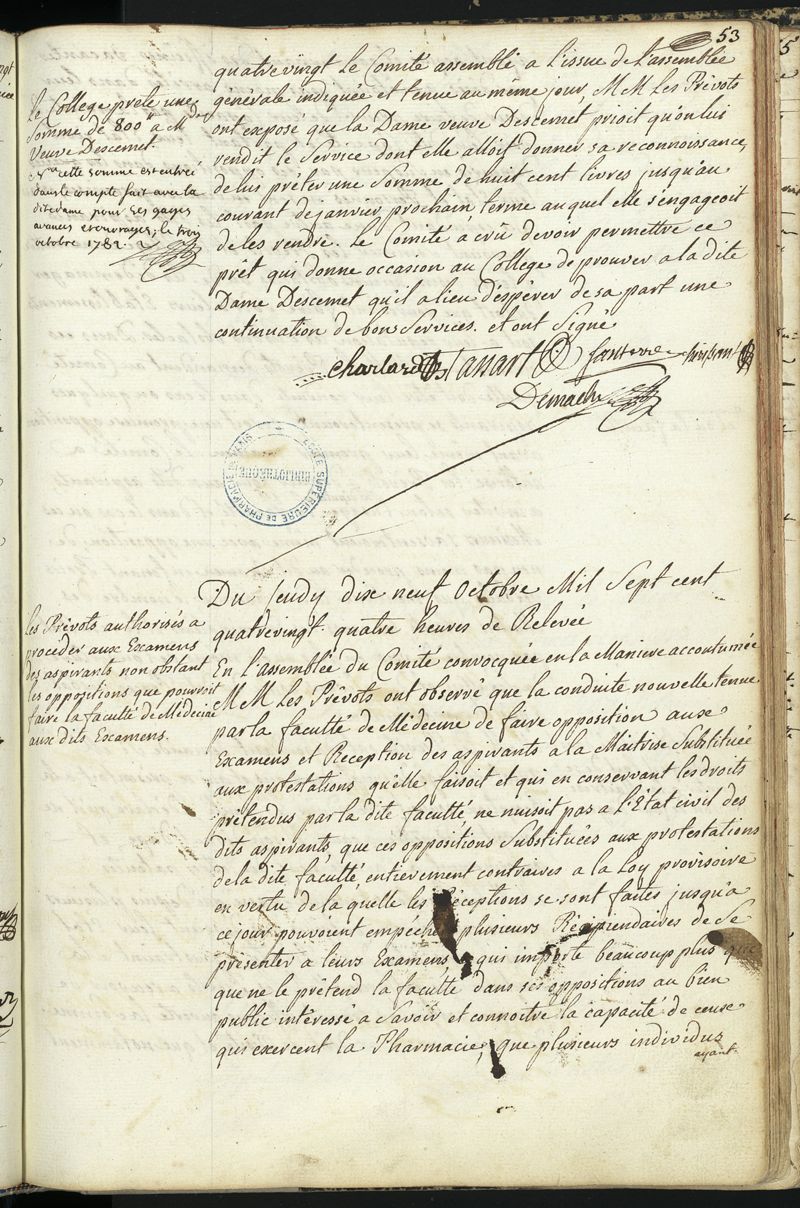 53
quatrevingt Le Comité assemblé a l'issue de l'assemblée
générale indiquée et tenue au même jour, M M. Les Prévots
ont exposé que la Dame veuve Descemet prioit qu'on lui
rendit le Service dont elle alloit donner sa reconnoissance,
de lui prêter une Somme de huit cent livres jusqu'au
courant de janvier prochain terme auquel elle s'engageoit
de les rendre. Le Comité a crû devoir permettre ce
prêt qui donne occasion au College de prouver a la dite
Dame Descemet qu'il a lieu d'espérer de sa part une
continuation de bon Services. et ont Signé
Le College prête une
Somme de 800tt a Md
Veuve Descemet.
cette somme est entrée
dans le compte fait avec la
dite dame pour ses gages
avances et ouvrages, le trois
octobre 1782
Charlard Tassart Santerre
Demachy
ECOLE SUPÉRIEURE DE PHARMACIE DE PARIS
BIBLIOTHÈQUE
Du jeudy dix neuf Octobre Mil Sept cent
quatrevingt. quatre heures de Relevée
Les Prévots authorisés a
proceder aux Examens
des aspirants non obstant
les oppositions que pourroit
faire la faculté de Médecine
aux dits Examens.
En l'assemblée du Comité convocquée en la Maniere accoutumée
M M. Les Prévots ont observé que la conduite nouvelle tenue
par la faculté de Médecine de faire opposition aux
Examens et Reception des aspirants a la Maitrise Substituée
aux protestations qu'elle faisoit et qui en conservant les droits
prétendus par la dite faculté, ne nuisoit pas a l'Etat civil des
dits aspirants, que ces oppositions Substituées aux protestations
de la dite faculté, entierement contraires a la Loy provisoire
en vertu de la quelle les Réceptions se sont faites jusqu'a
ce jour pouvoient empêcher plusieurs Récipiendaires de se
présenter a leurs Examens qui importe beaucoup plus que
que ne le prétend la faculté dans ses oppositions au bien
public intéressé a Savoir et connoitre la capacité de ceux
qui exercent la Pharmacie, que plusieurs individus
ayant